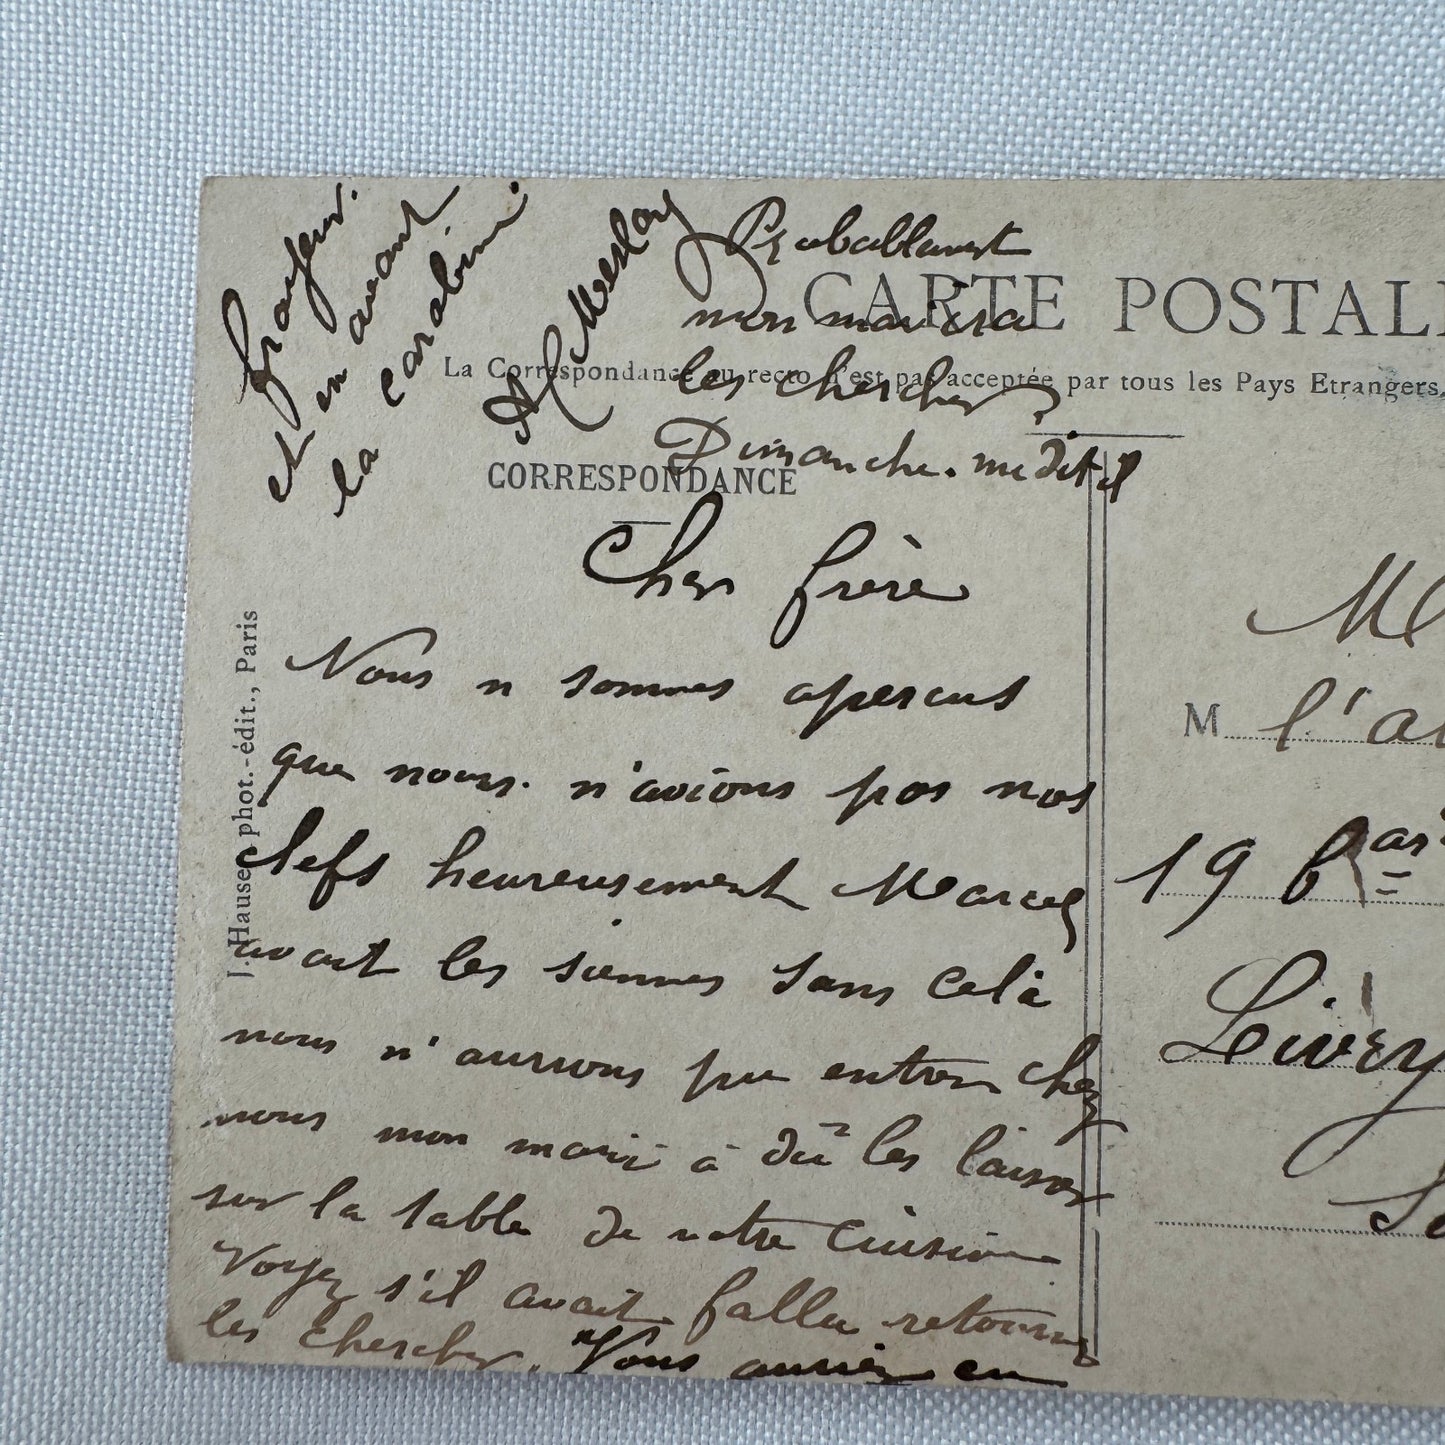 frayeur.
et en avant
la carabine.
A Meslay
Probablement
mon mari ira
les chercher
Dimanche. me dit il
CARTE POSTAL
La Correspondance au recto n'est pas acceptée par tous les Pays Etrangers
CORRESPONDANCE
Cher frère
Nous n sommes apercus
que nous. n'avions pas nos
clefs heureusement Marcel
avait les siennes sans celà
nous n'aurions pu entrer chez
nous mon mari à dû les laisser
sur la table de notre cuisine
Voyez s'il avait fallu retourner
les chercher. Vous auriez eu
J. Hauser, phot.-édit., Paris
M l'a
19 b
Livry